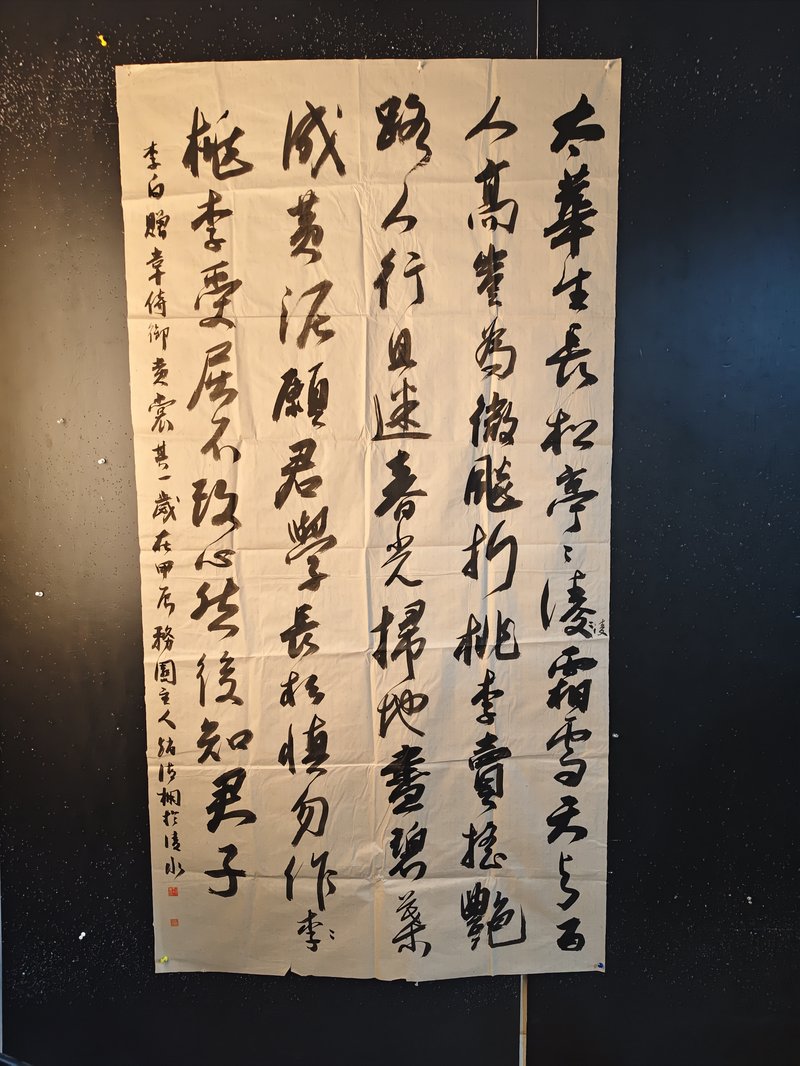 太華生長松亭〻淩霜雪天与百
尺高豈為微飈折桃李賣搖艷
路人行且迷春光掃地盡碧葉
成黃泥願君學長松慎勿作李〻
桃李受屈不改心然後知君子
李白贈韋倚御黃裳其一歲在甲辰務園主人於清水